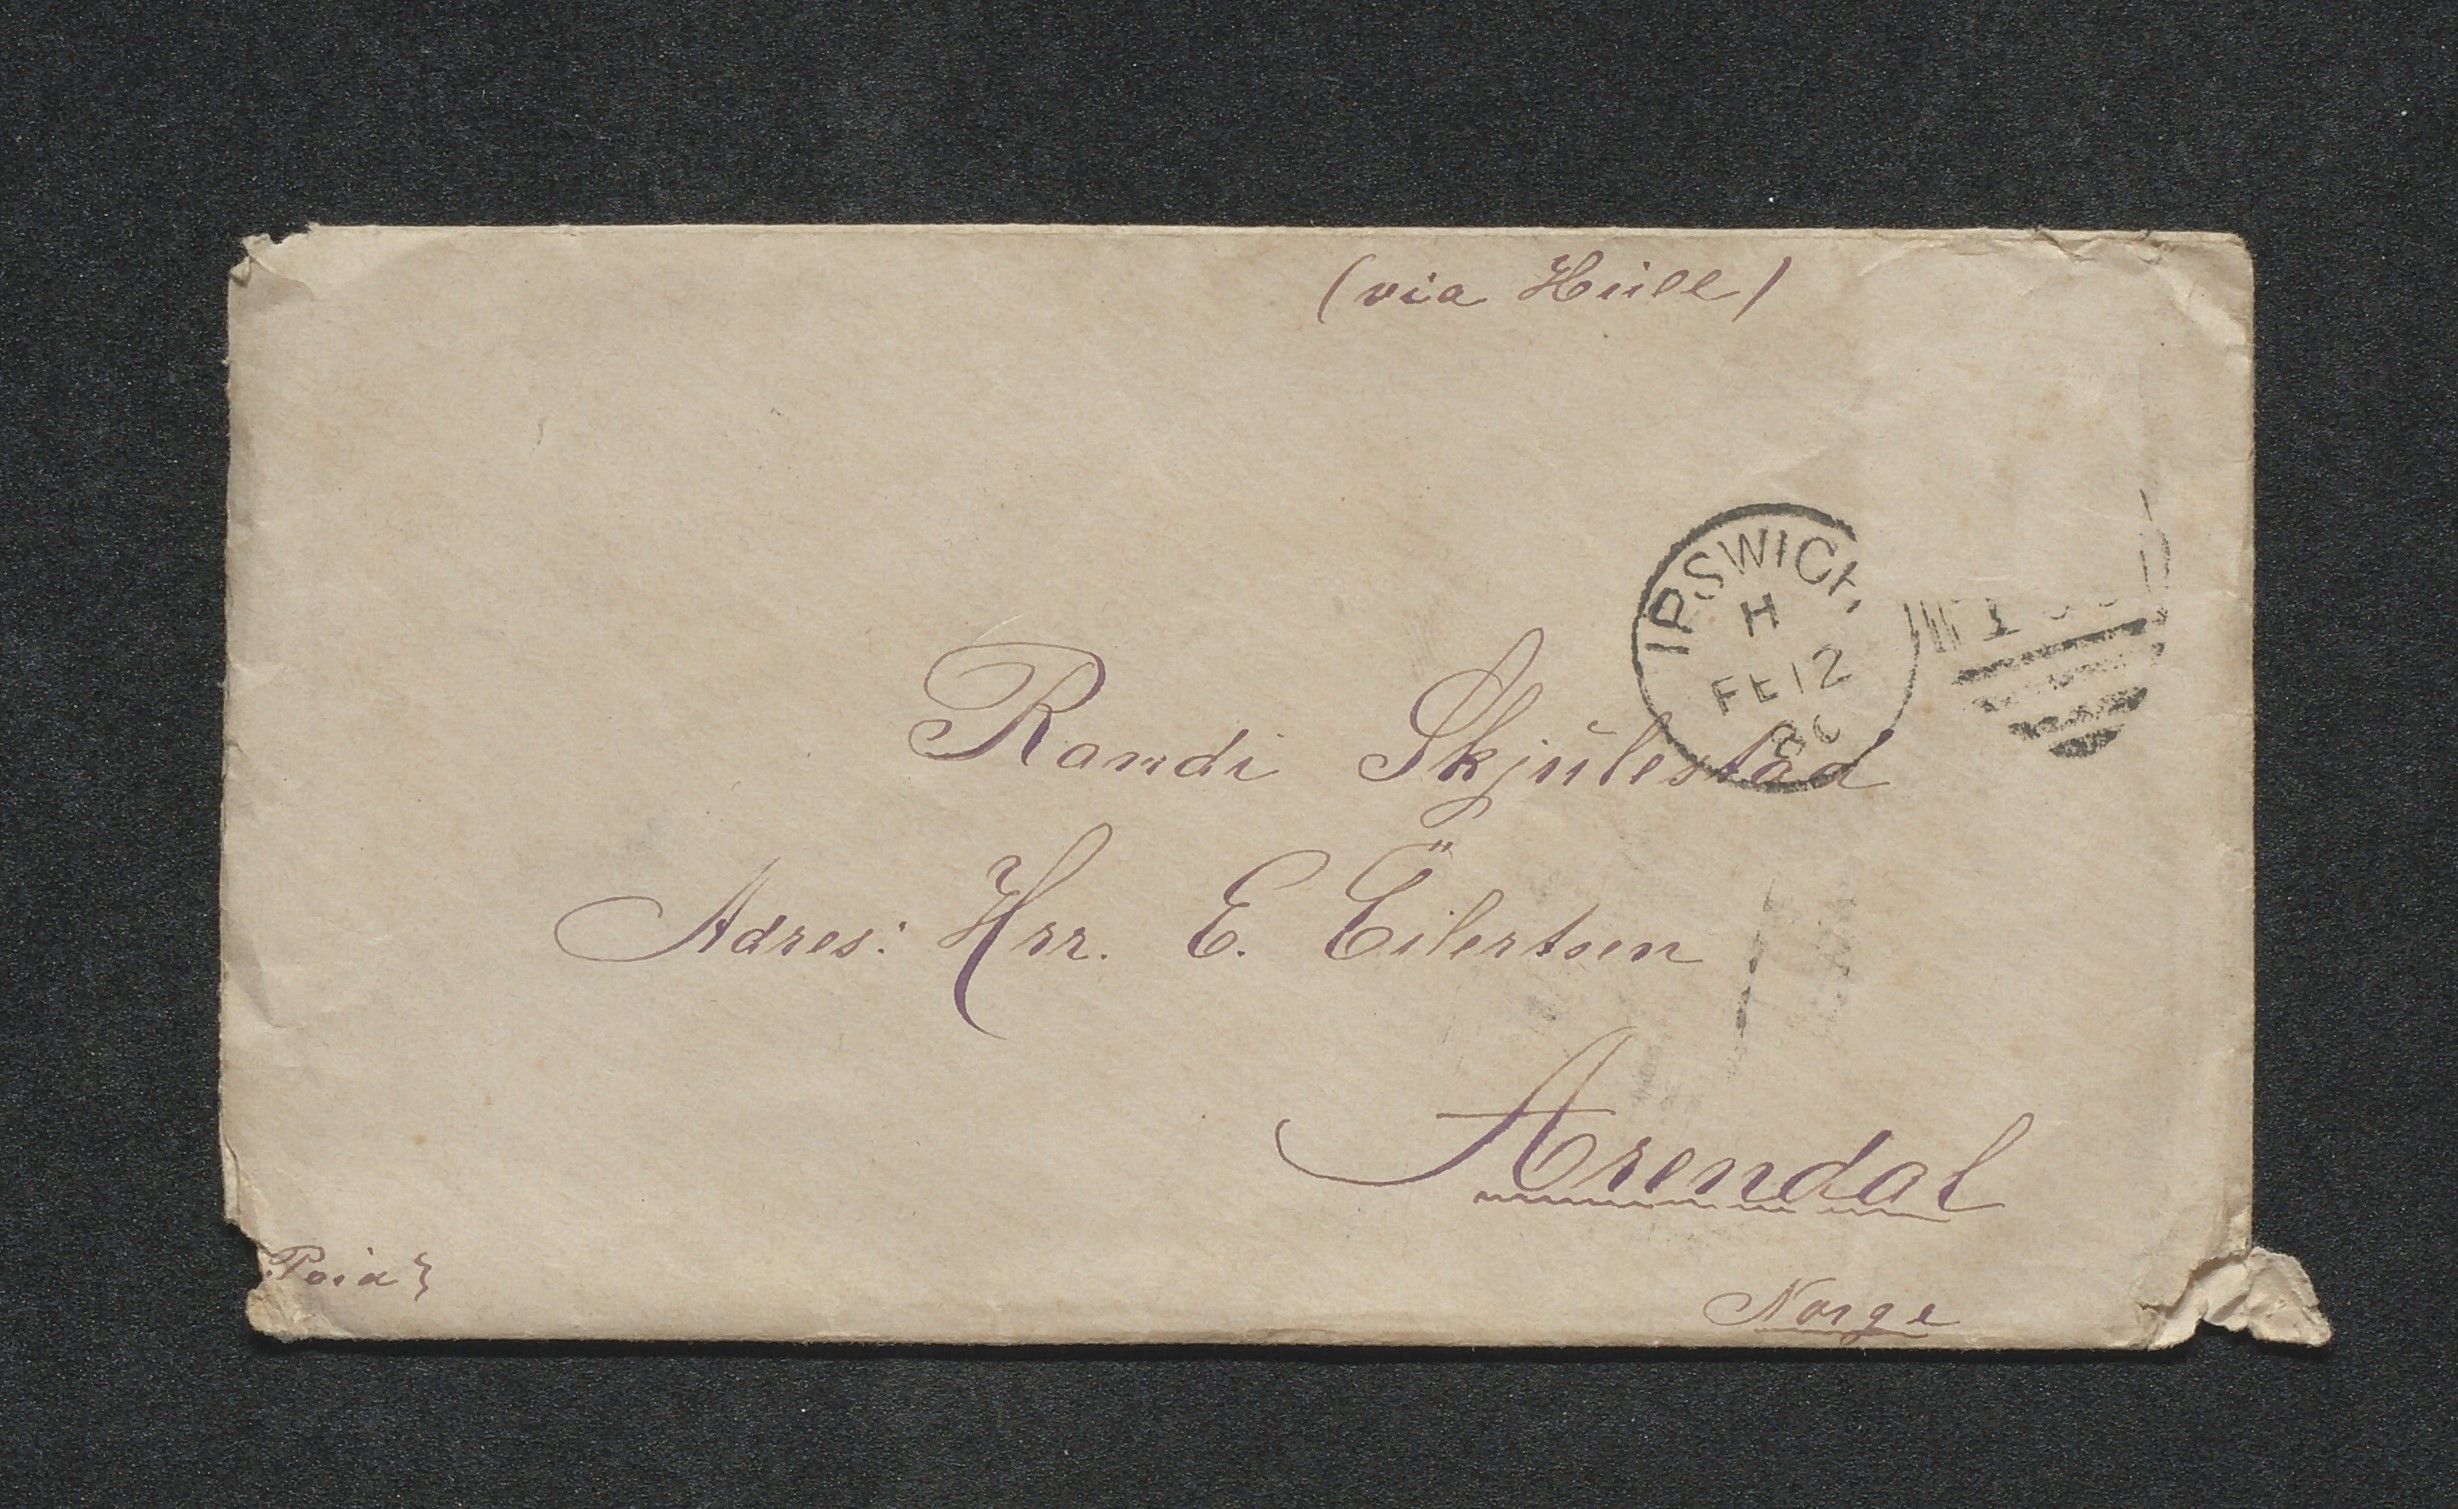 (via Hull)
IPSWICH
H
FE 12
86
Randi Skjulestad
Adres: Hrr. E. Eilertsen
Arendal
Paid
Norge